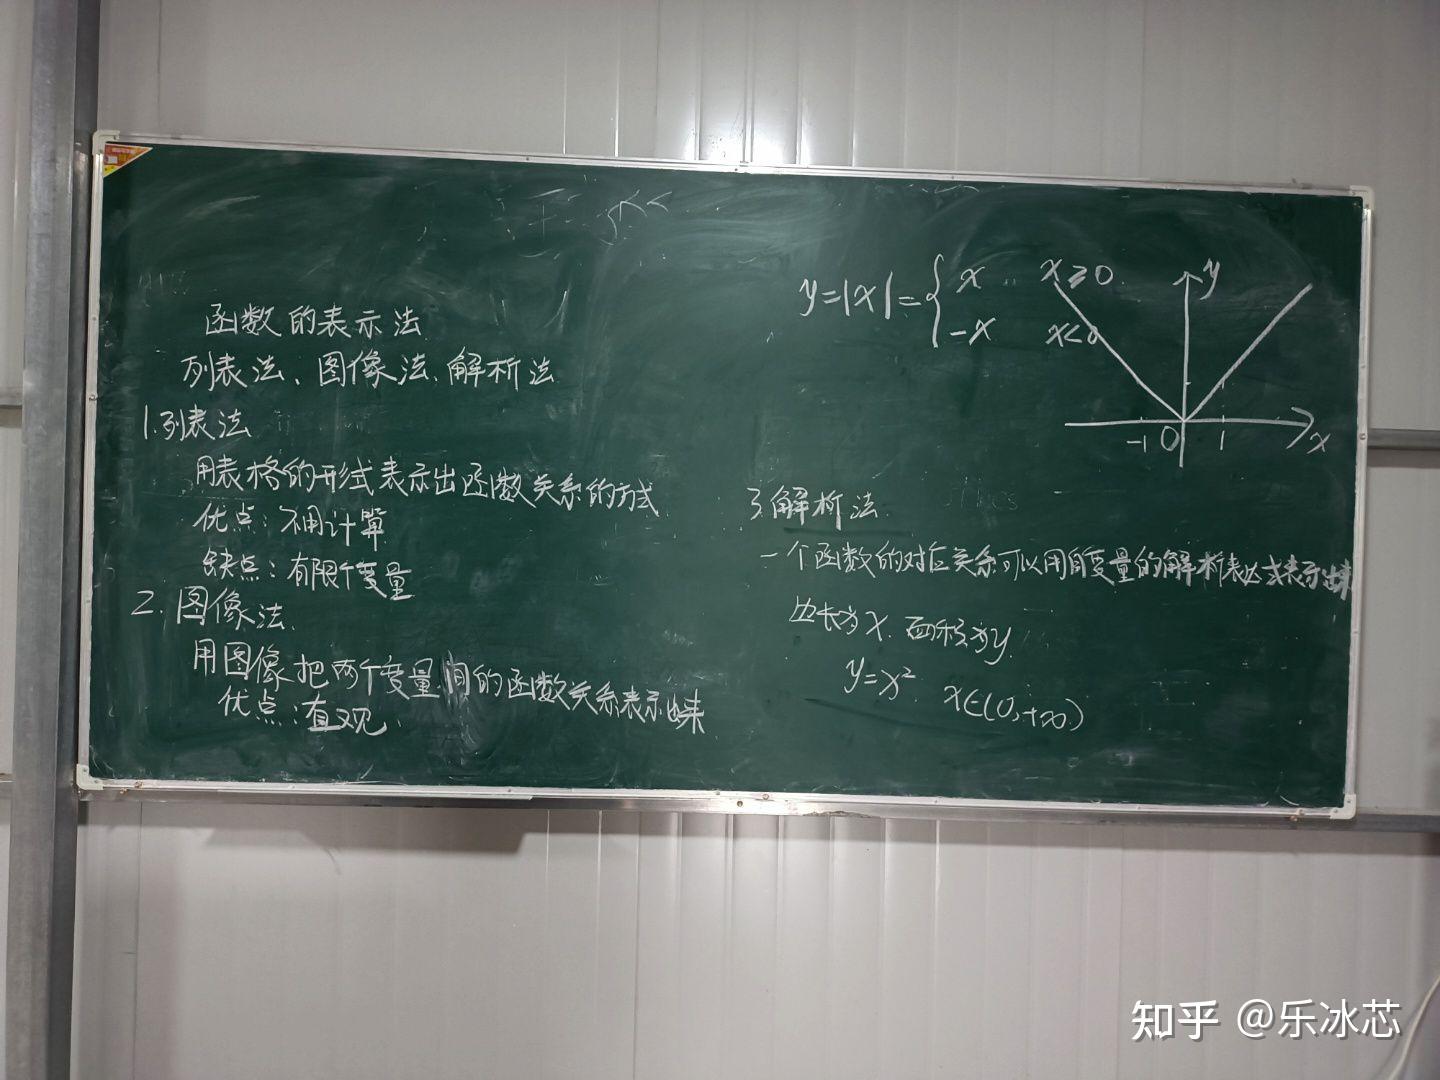 函数的表示法
列表法、图像法、解析法
1.列表法
用表格的形式表示出函数关系的方式
优点：不用计算
缺点：有限个变量
2.图像法.
用图像把两个变量间的函数关系表示出来
优点：直观.
y=|x|={x x≥0.
-x x<0
y
-1 0 1 x
3.解析法
一个函数的对应关系可以用自变量的解析表达式表示出来
边长为x.面积为y.
y=x². x∈(0,+∞)
知乎 @乐冰芯